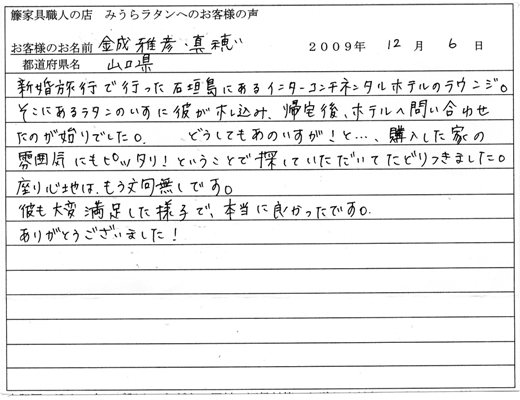 籐家具職人の店　みうらラタンへのお客様の声
お客様のお名前 金成雅彦・真穂
2009年 12月 6日
都道府県名 山口県
新婚旅行で行った石垣島にあるインターコンチネンタルホテルのラウンジ。
そこにあるラタンのいすに彼がホレ込み、帰宅後、ホテルへ問い合わせ
たのが始りでした。 どうしてもあのいすが!と…、購入した家の
雰囲気にもピッタリ!ということで探していただいてたどりつきました。
座り心地は、もう文句無しです。
彼も大変満足した様子で、本当に良かったです。
ありがとうございました!